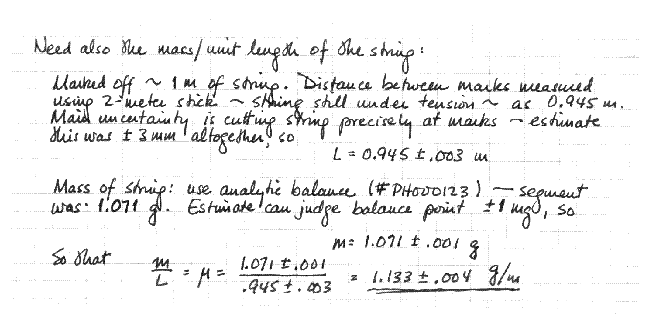 Need also the mass/unit length of the string:
Marked off ~ 1 m of string. Distance between marks measured
using 2-meter stick ~ string still under tension ~ as 0.945 m.
Main uncertainty is cutting string precisely at marks — estimate
this was ± 3 mm altogether, so
L = 0.945 ± .003 m
Mass of string: use analytic balance (#PH000123) — segment
was: 1.071 g. Estimate can judge balance point ±1 mg, so
m = 1.071 ± .001 g
So that m/L = μ = 1.071 ± .001 / .945 ± .003 = 1.133 ± .004 g/m